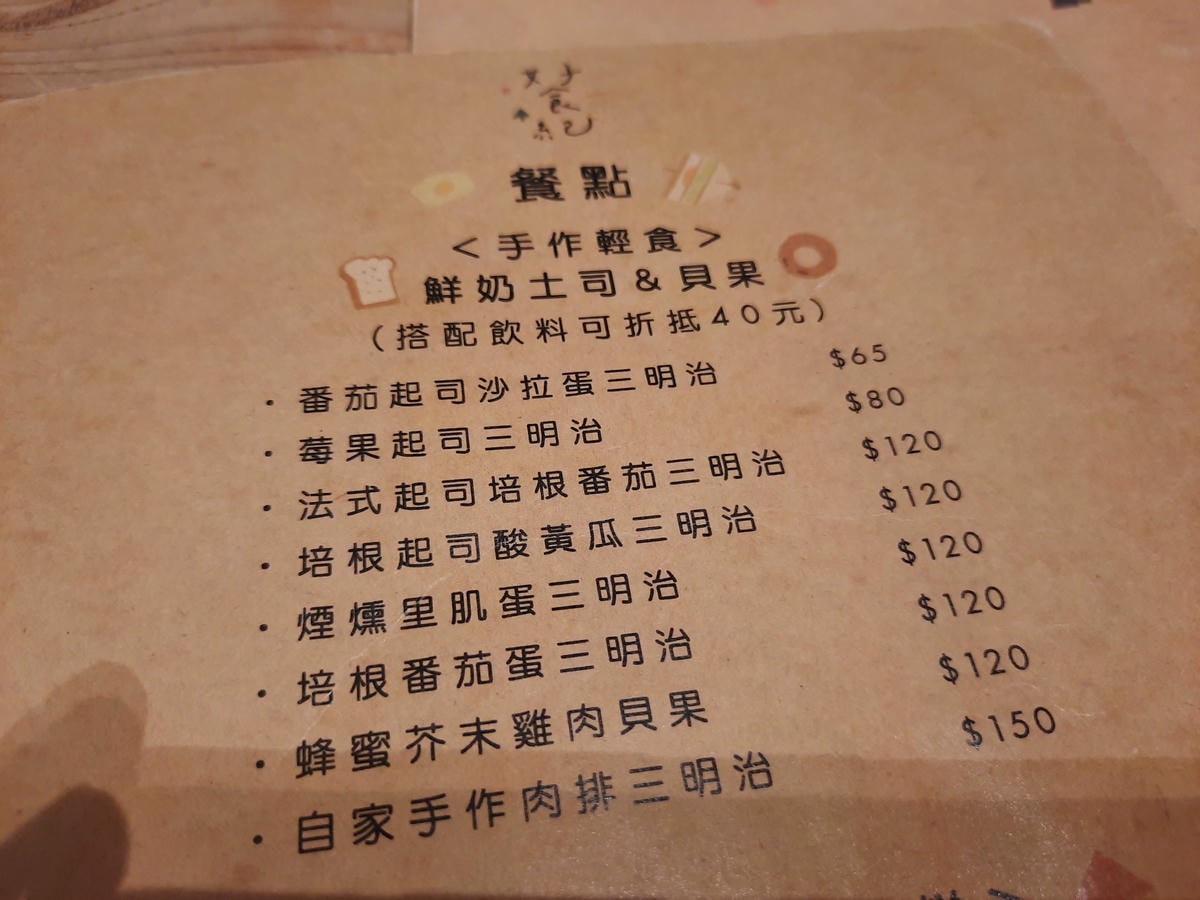 好
食
紀
餐點
<手作輕食>
鮮奶土司&貝果
(搭配飲料可折抵40元)
・番茄起司沙拉蛋三明治 $65
・莓果起司三明治 $80
・法式起司培根番茄三明治 $120
・培根起司酸黃瓜三明治 $120
・煙燻里肌蛋三明治 $120
・培根番茄蛋三明治 $120
・蜂蜜芥末雞肉貝果 $120
・自家手作肉排三明治 $150